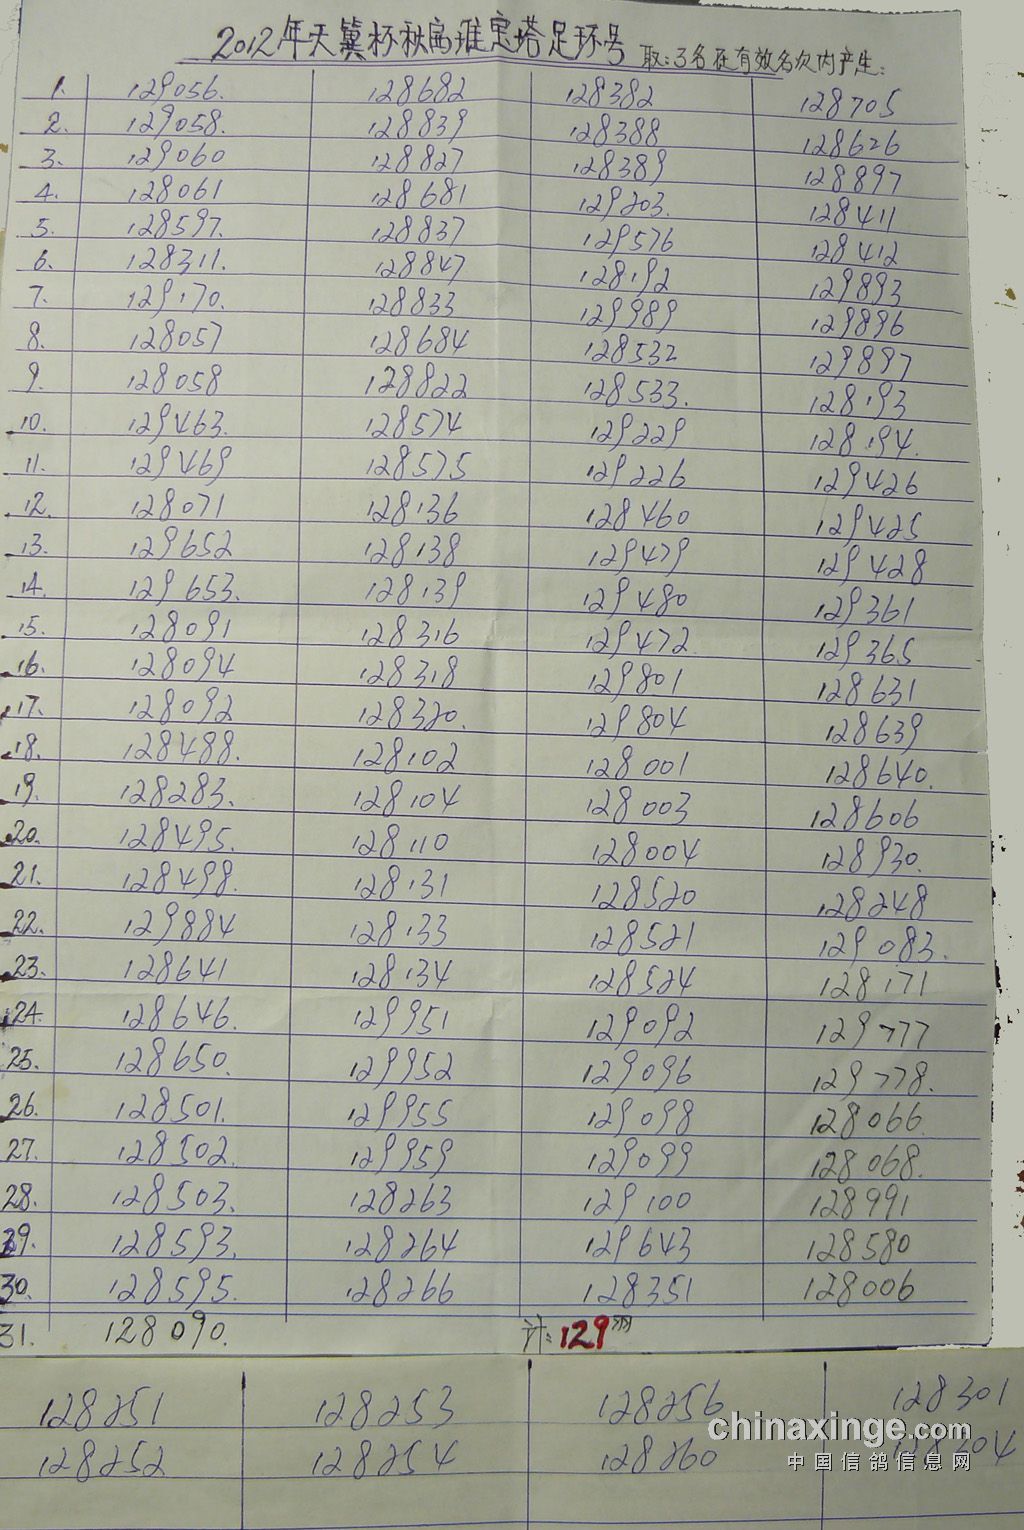 2012年天翼杯秋店雄宝塔足环号 取:3名在有效名次内产生:
1. 129056. 128682 128382 128705
2. 129058. 128839 128388 128626
3. 129060 128827 128389 128897
4. 128061 128681 129203. 128411
5. 128597. 128837 129576 128412
6. 128311. 128847 128192 129893
7. 129170. 128833 129989 129896
8. 128057 128684 128532 129897
9. 128058 128822 128533. 128193
10. 129463. 128574 129229 128194.
11. 129469 128575 129226 129426
12. 128071 128136 128460 129425
13. 129652 128138 129479 129428
14. 129653. 128139 129480 129361
15. 128091 128316 129472 129365
16. 128094 128318 129801 128631
17. 128092 128320. 129804 128639
18. 128488. 128102 128001 128640.
19. 128283. 128104 128003 128606
20. 128495. 128110 128004 128930.
21. 128498. 128131 128520 128248
22. 129884 128133 128521 129083.
23. 128641 128134 128524 128171
24. 128646. 129951 129092 129777
25. 128650. 129952 129096 129778.
26. 128501. 129955 129098 128066.
27. 128502. 129959 129099 128068.
28. 128503. 128263 129100 128991
29. 128593. 128264 129643 128580
30. 128595. 128266 128351 128006
31. 128090. 计:129羽
128251 128253 128256 128301
128252 128254 128260 128304
chinaxinge.com
中国信鸽信息网